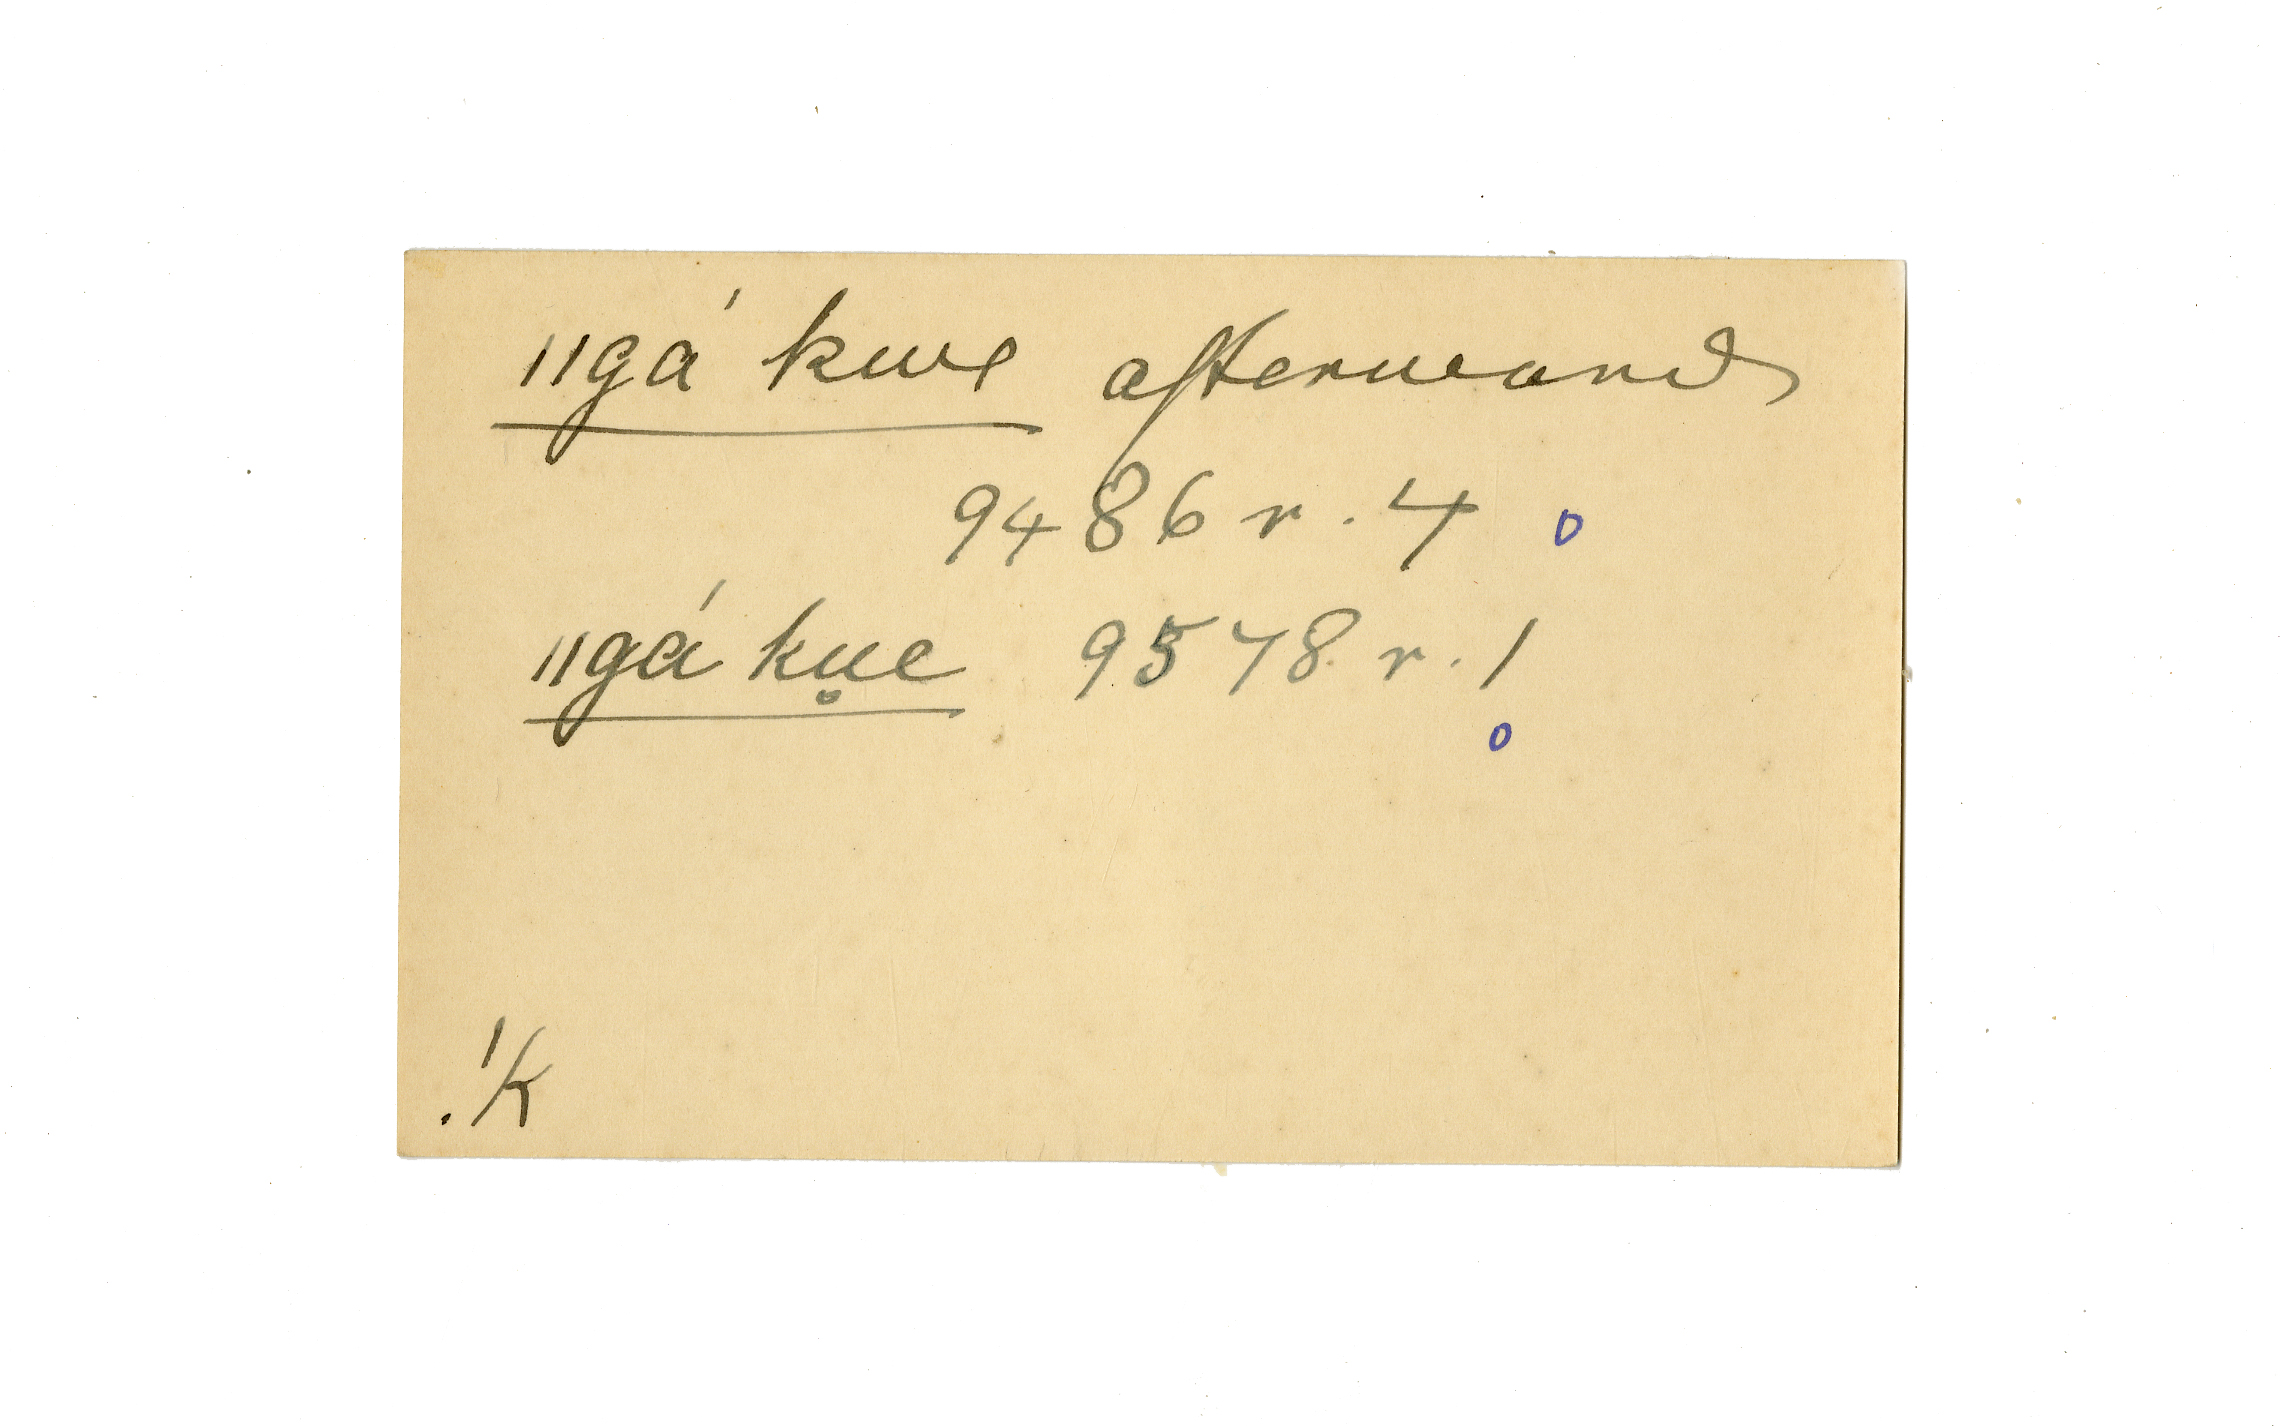 ǁgá kwe afterwards
9486 r. 4 o
ǁgá ku̥e 9578 r. 1
o
.ǃk